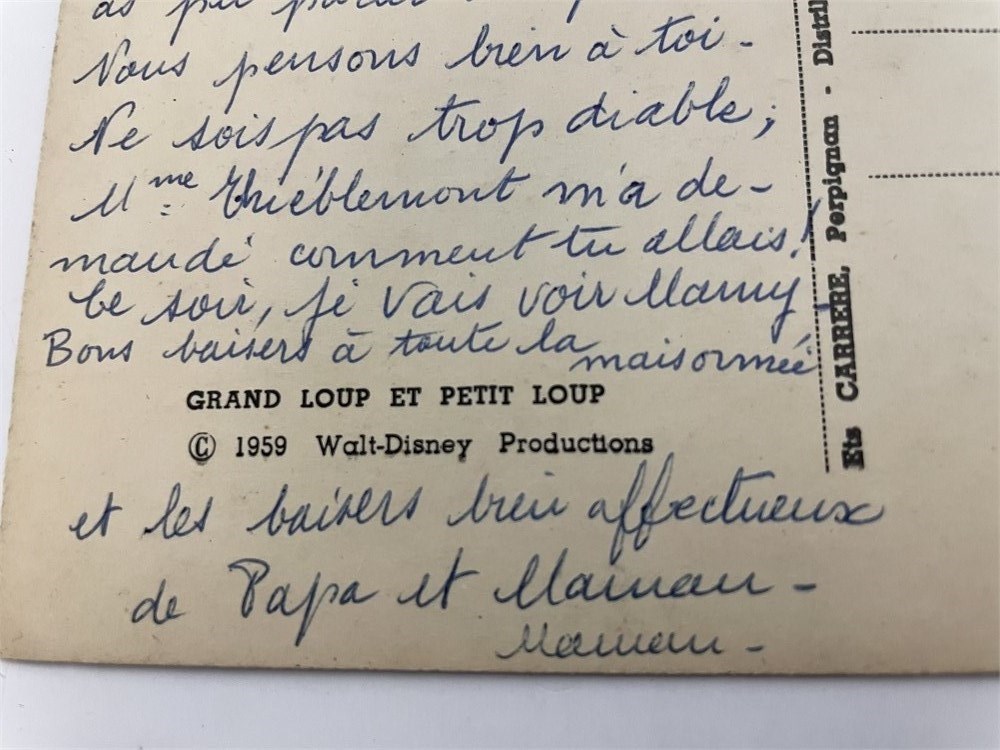 as pu parler
Nous pensons bien à toi -
Ne sois pas trop diable ;
Mme Thiéblemont m'a de-
mandé comment tu allais !
Ce soir, je vais voir Mamy -
Bons baisers à toute la maisonnée
GRAND LOUP ET PETIT LOUP
© 1959 Walt-Disney Productions
et les baisers bien affectueux
de Papa et Maman -
Maman -
Ets CARRERE, Perpignan - Distri